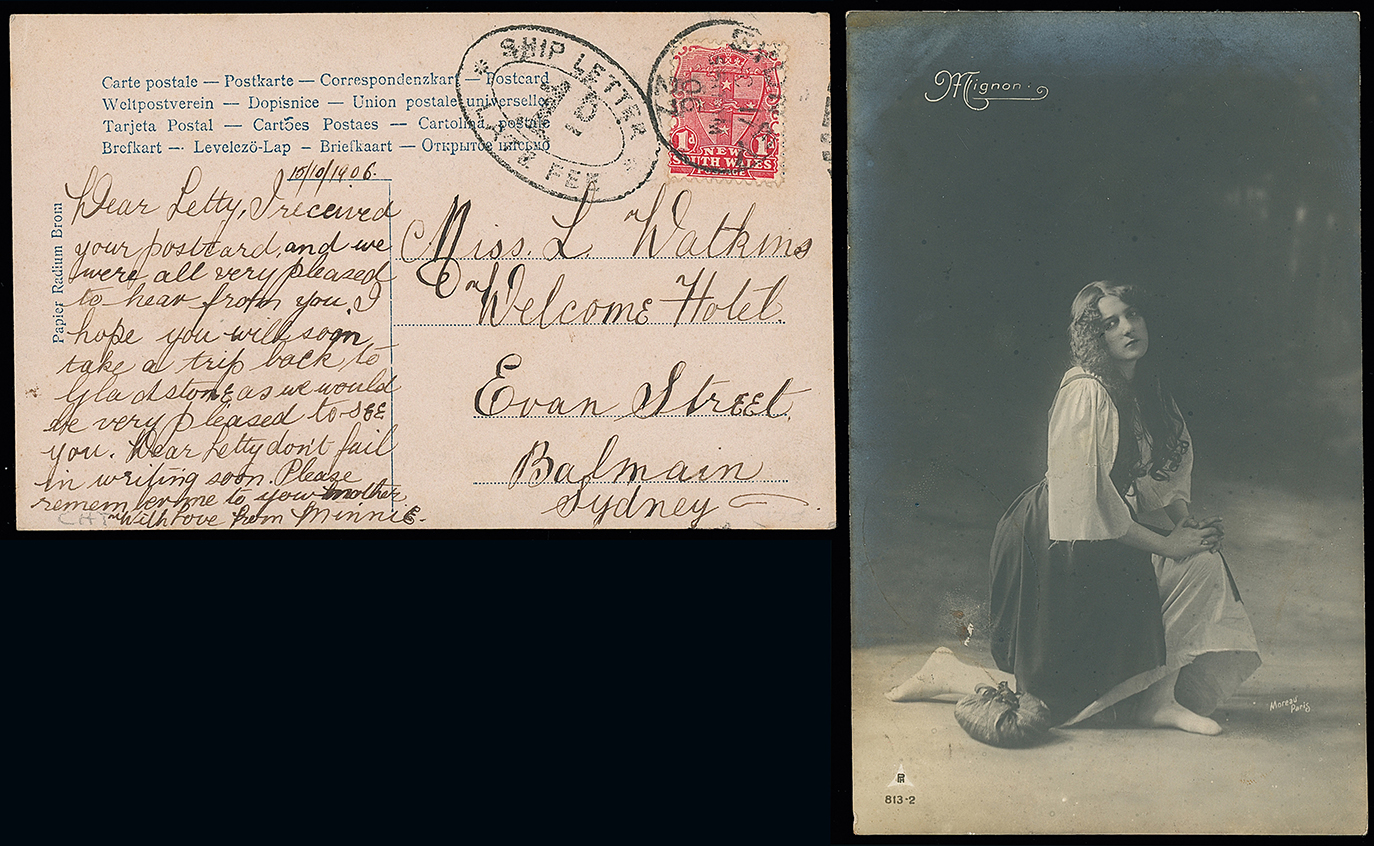 Carte postale — Postkarte — Correspondenzkart — Postcard
Weltpostverein — Dopisnice — Union postale universelle
Tarjeta Postal — Cartões Postaes — Cartolina postale
Brefkart — Levelező-Lap — Briefkaart — Открытое письмо
SHIP LETTER
FEE
1d 1d
NEW
SOUTH WALES
POSTAGE
Papier Radium Brom
10/10/1906.
Dear Letty, I received
your postcard, and we
were all very pleased
to hear from you, I
hope you will soon
take a trip back to
Gladstone as we would
be very pleased to see
you. Dear Letty don't fail
in writing soon. Please
remember me to your mother
With love from Minnie.
Miss. L Watkins
Welcome Hotel.
Evan Street.
Balmain
Sydney
Mignon.
Moreau
Paris
813-2